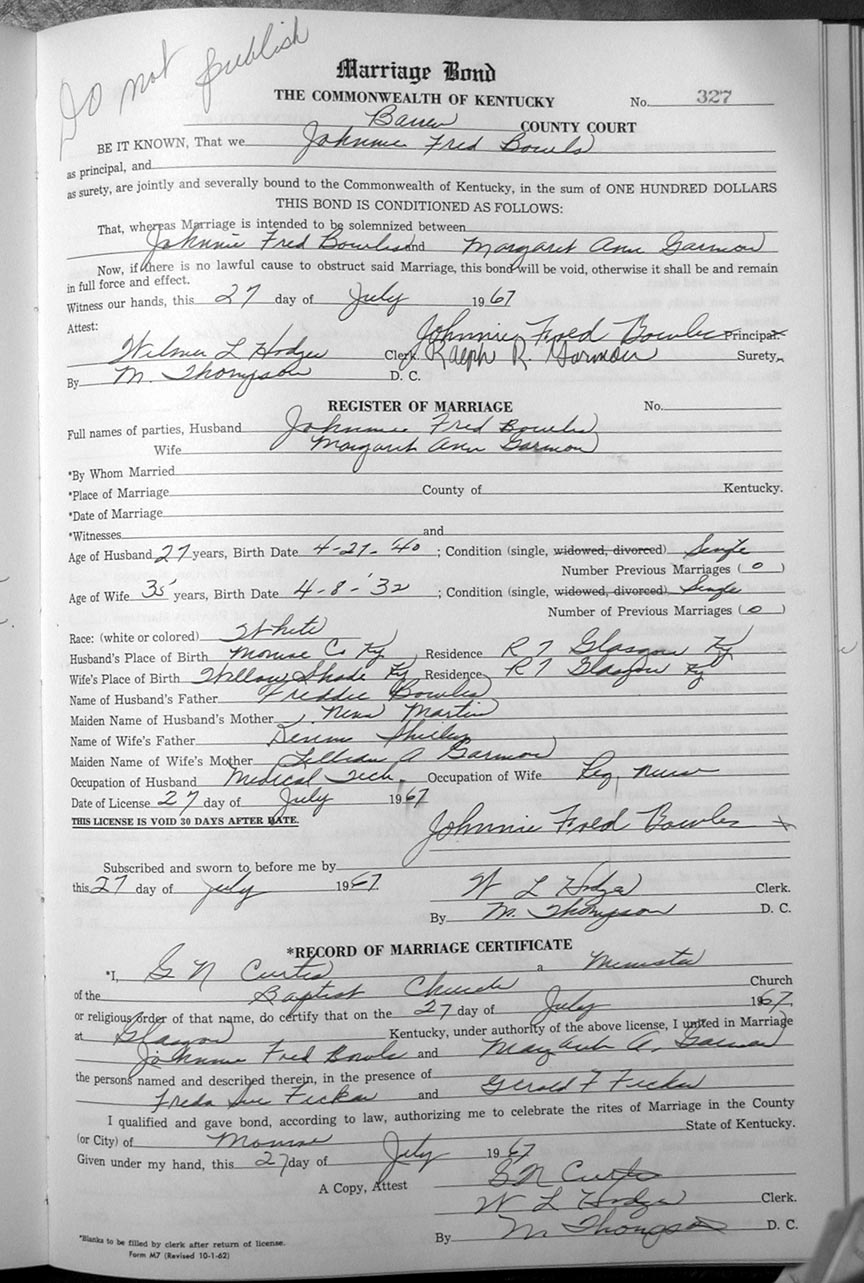 Do not publish
Marriage Bond
THE COMMONWEALTH OF KENTUCKY No. 327
Barren COUNTY COURT
BE IT KNOWN, That we Johnnie Fred Bowles
as principal, and
as surety, are jointly and severally bound to the Commonwealth of Kentucky, in the sum of ONE HUNDRED DOLLARS
THIS BOND IS CONDITIONED AS FOLLOWS:
That, whereas Marriage is intended to be solemnized between
Johnnie Fred Bowles and Margaret Ann Garmon
Now, if there is no lawful cause to obstruct said Marriage, this bond will be void, otherwise it shall be and remain
in full force and effect.
Witness our hands, this 27 day of July 1967
Attest: Johnnie Fred Bowles Principal.
Wilma L Hodge Clerk. Ralph R. Garmon Surety.
By M. Thompson D. C.
REGISTER OF MARRIAGE No.
Full names of parties, Husband Johnnie Fred Bowles
Wife Margaret Ann Garmon
*By Whom Married
*Place of Marriage County of Kentucky.
*Date of Marriage
*Witnesses and
Age of Husband 27 years, Birth Date 4-27-'40 ; Condition (single, widowed, divorced) Single
Number Previous Marriages ( 0 )
Age of Wife 35 years, Birth Date 4-8-'32 ; Condition (single, widowed, divorced) Single
Number of Previous Marriages ( 0 )
Race: (white or colored) White
Husband's Place of Birth Monroe Co Ky Residence R 7 Glasgow Ky
Wife's Place of Birth Willow Shade Ky Residence R 7 Glasgow Ky
Name of Husband's Father Freddie Bowles
Maiden Name of Husband's Mother Nina Martin
Name of Wife's Father Shirley
Maiden Name of Wife's Mother Lillian A Garmon
Occupation of Husband Medical Tech. Occupation of Wife Reg. Nurse
Date of License 27 day of July 1967
THIS LICENSE IS VOID 30 DAYS AFTER DATE.
Johnnie Fred Bowles x
Subscribed and sworn to before me by
this 27 day of July 1967. W L Hodge Clerk.
By M. Thompson D. C.
*RECORD OF MARRIAGE CERTIFICATE
*I, G N Curtis a Minister
of the Baptist Church Church
or religious order of that name, do certify that on the 27 day of July 1967,
at Glasgow Kentucky, under authority of the above license, I united in Marriage
Johnnie Fred Bowles and Margaret A. Garmon
the persons named and described therein, in the presence of
Freda Sue and Gerald F
I qualified and gave bond, according to law, authorizing me to celebrate the rites of Marriage in the County
(or City) of Monroe State of Kentucky.
Given under my hand, this 27 day of July 1967
G N Curtis
A Copy, Attest W L Hodge Clerk.
By M Thompson D. C.
*Blanks to be filled by clerk after return of license.
Form M7 (Revised 10-1-62)